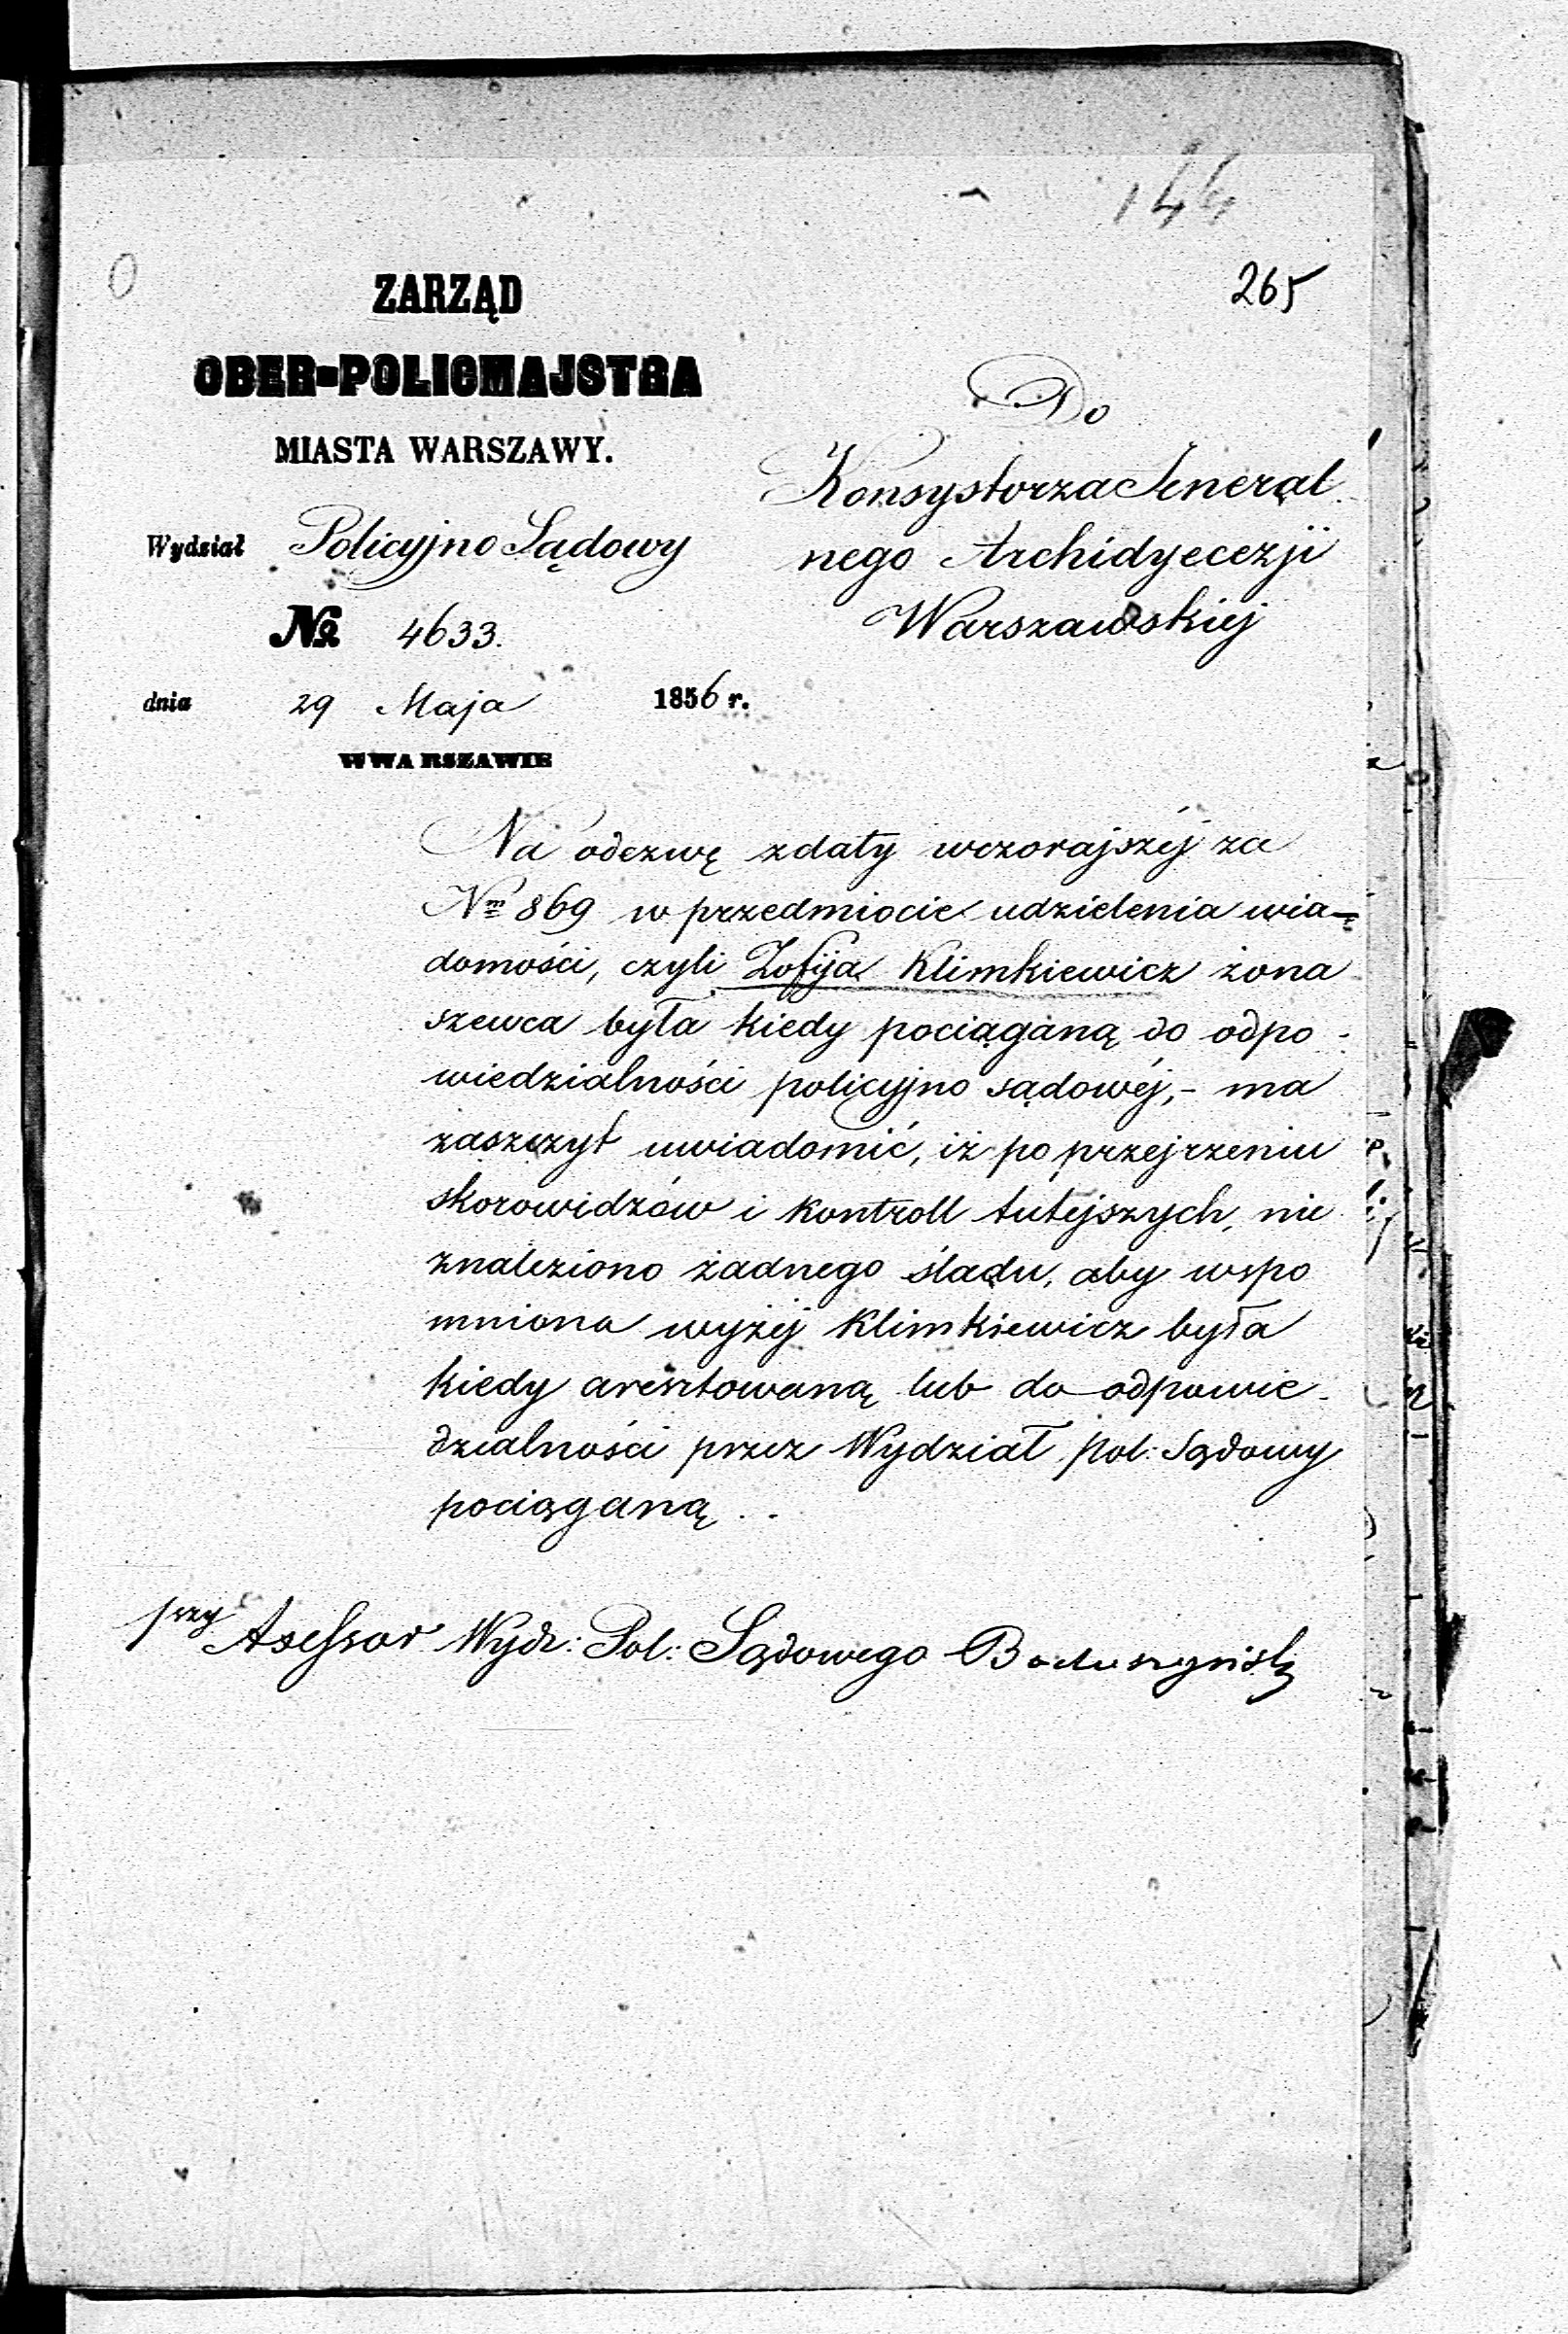 144
265
ZARZĄD
OBER-POLICMAJSTRA
MIASTA WARSZAWY.
Wydział Policyjno Sądowy
№ 4633.
dnia 29 Maja 1856 r.
W WARSZAWIE
Do
Konsystorza Jeneral
nego Archidyecezji
Warszawskiej
Na odezwę z daty wczorajszéj za
Nm 869 w przedmiocie udzielenia wia-
domości, czyli Zofija Klimkiewicz żona
szewca była kiedy pociąganą do odpo-
wiedzialności policyjno sądowéj,- ma
zaszczyt uwiadomić, iż po przejrzeniu
skorowidzów i kontroll tutejszych, nie
znaleziono żadnego śladu, aby wspo
mniona wyżéj Klimkiewicz była
kiedy aresztowaną lub do odpowie-
dzialności przez Wydział pol: Sądowy
pociąganą..
przy Asessor Wydz: Pol: Sądowego